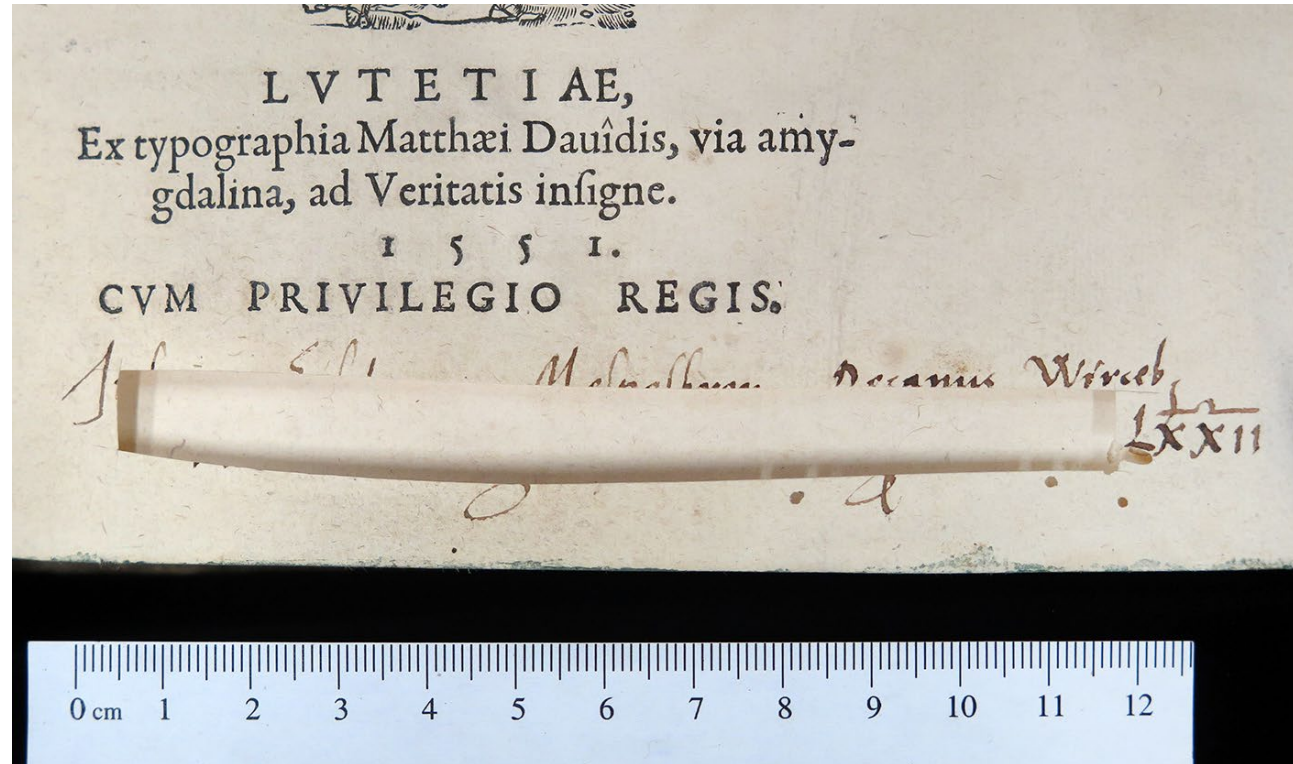 LVTETIAE,
Ex typographia Matthæi Dauîdis, via amy-
gdalina, ad Veritatis inſigne.
1551.
CVM PRIVILEGIO REGIS.
Decanus Wirceb
LXXII
0 cm 1 2 3 4 5 6 7 8 9 10 11 12